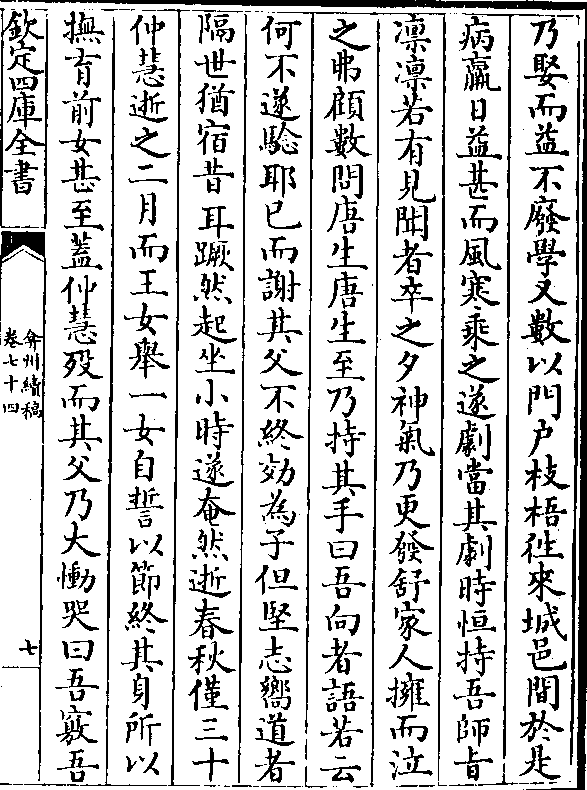 乃娶而益不廢學又數以門户枝梧往來城邑間於是
病羸日益甚而風寒乘之遂劇當其劇時恒持吾師㫖
凛凛若有見聞者卒之夕神氣乃更發舒家人擁而泣
之弗顧數問唐生唐生至乃持其手曰吾向者語若云
何不遂驗耶已而謝其父不終効為子但堅志嚮道者
隔世猶宿昔耳蹶然起坐小時遂奄然逝春秋僅三十
仲慧逝之二月而王女舉一女自誓以節終其身所以
撫育前女甚至蓋仲慧殁而其父乃大慟哭曰吾竅吾
欽定四庫全書
弇州續稿
卷七十四
七